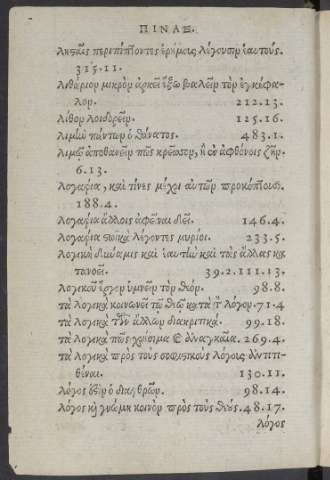 ΠΙΝΑΞ.
λῃσταῖς περιπίπτοντες ἐρήμους λέγουσιν ἑαυτούς.
315.11.
λιθάριον μικρὸν ἀρκεῖ ἔξω βαλεῖν τὸν ἐγκέφα-
λον. 212.13.
λίθον λοιδορεῖν. 125.16.
λιμὼν πάντων ὁ θάνατος. 483.1.
λιμῷ ἀποθανεῖν πῶς κρεῖσσον, ἢ ἐν ἀφθόνοις ζῆν.
6.13.
λογάρια, καὶ τίνες μέχρι αὐτῶν προκόπτουσι.
188.4.
λογάρια ἄλλοις ἀφεῖναι δεῖ. 146.4.
λογάρια λέγοντες μυρίοι. 233.5.
λογικὴ δύναμις καὶ ἑαυτὴν καὶ τὰς ἄλλας κα
τανοεῖ. 39.2.111.13.
λογικοῦ ἔργον ὑμνεῖν τὸν θεόν. 98.8.
τὰ λογικὰ κοινωνεῖ τῷ θεῷ κατὰ τ λόγον.71.4
τὰ λογικὰ τῶν ἄλλων διακριτικά. 99.18.
τὰ λογικὰ πῶς χρήσιμα & ἀναγκαῖα. 269.4.
τὰ λογικὰ πρὸς τοὺς σοφιστικοὺς λόγους ἀντιτι-
θέναι. 130.11.
λόγος ἐστὶν ὁ διαρθρῶν. 98.14.
λόγος κὴ γνώμη κοινὸν πρὸς τοὺς θεούς.48.17.
λόγος